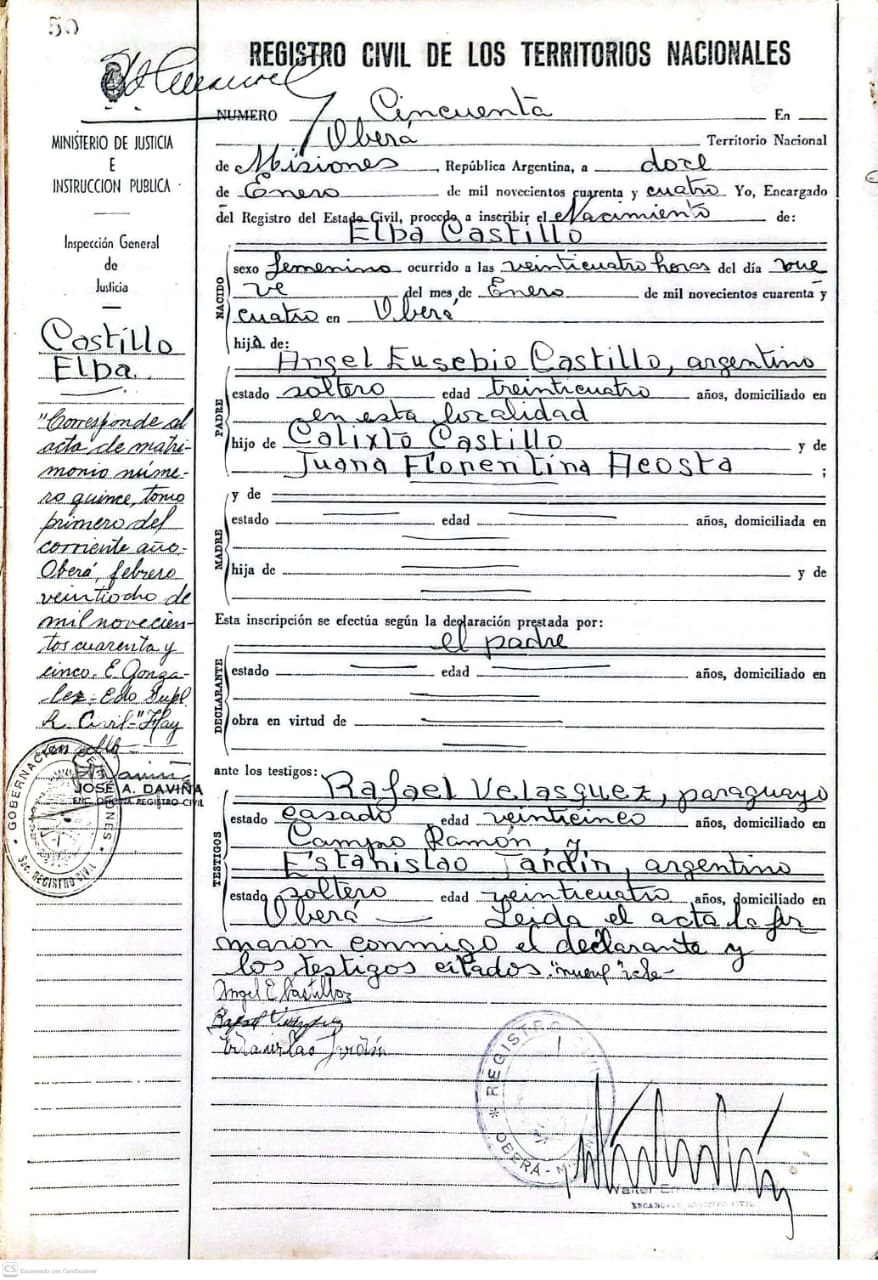 50
REGISTRO CIVIL DE LOS TERRITORIOS NACIONALES
MINISTERIO DE JUSTICIA
E
INSTRUCCION PUBLICA
Inspección General
de
Justicia
Castillo
Elba.
"Corresponde al
acta de matri-
monio núme-
ro quince, tomo
primero del
corriente año.
Oberá, febrero
veintiocho de
mil novecien-
tos cuarenta y
cinco. E. Gonza-
lez. Edo Supl.
R. Civil-" Hay
un sello
JOSÉ A. DAVIÑA
ENC. REGISTRO CIVIL
GOBERNACION DE MISIONES
Sec. REGISTRO CIVIL
NUMERO Cincuenta En
Oberá Territorio Nacional
de Misiones, República Argentina, a doce
de Enero de mil novecientos cuarenta y cuatro Yo, Encargado
del Registro del Estado Civil, procedo a inscribir el Nacimiento de:
Elba Castillo
NACIDO
sexo femenino ocurrido a las veinticuatro horas del día nue
ve del mes de Enero de mil novecientos cuarenta y
cuatro en Oberá
hija de:
PADRE
Angel Eusebio Castillo, argentino
estado soltero edad treinticuatro años, domiciliado en
en esta localidad
hijo de Calixto Castillo y de
Juana Florentina Acosta ;
MADRE
y de
estado edad años, domiciliada en
hija de y de
Esta inscripción se efectúa según la declaración prestada por:
el padre
DECLARANTE
estado edad años, domiciliado en
obra en virtud de
ante los testigos:
TESTIGOS
Rafael Velasquez, paraguayo
estado casado edad veinticinco años, domiciliado en
Campo Ramón, y
Estanislao Jardín, argentino
estado soltero edad veinticuatro años, domiciliado en
Oberá Leida el acta la fir
maron conmigo el declarante y
los testigos citados.
Angel E Castillo
Estanislao Jardín
REGISTRO CIVIL
OBERÁ - MISIONES
Walter
ENCARGADO REGISTRO CIVIL
CS Escaneado con CamScanner